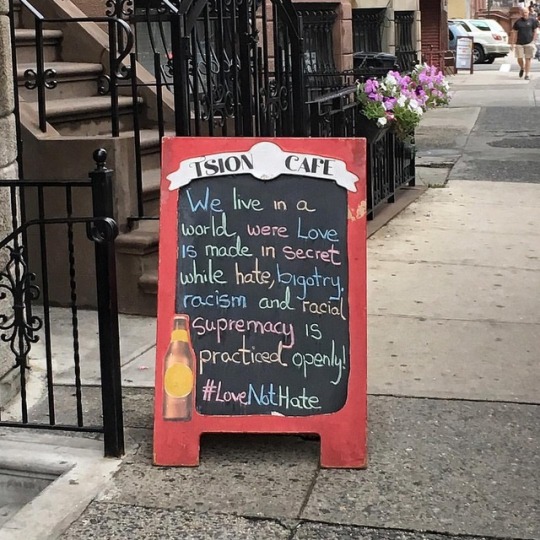 TSION CAFE
We live in a
world, were Love
is made in secret
while hate, bigotry,
racism and racial
supremacy is
practiced openly!
#LoveNotHate